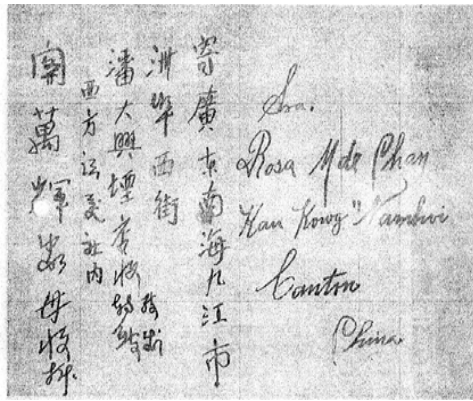 寄廣東南海九江市
西街
潘大興 店收
西方 社內
關萬輝 母收拆
Sra.
Rosa M de Chan
Kau Kong "Namhoi
Canton
China